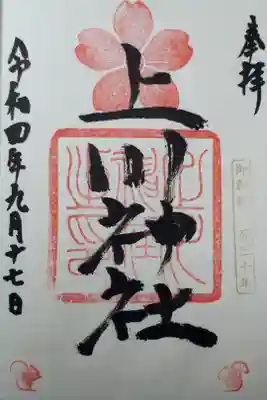 奉拝
上川神社
令和四年九月十七日